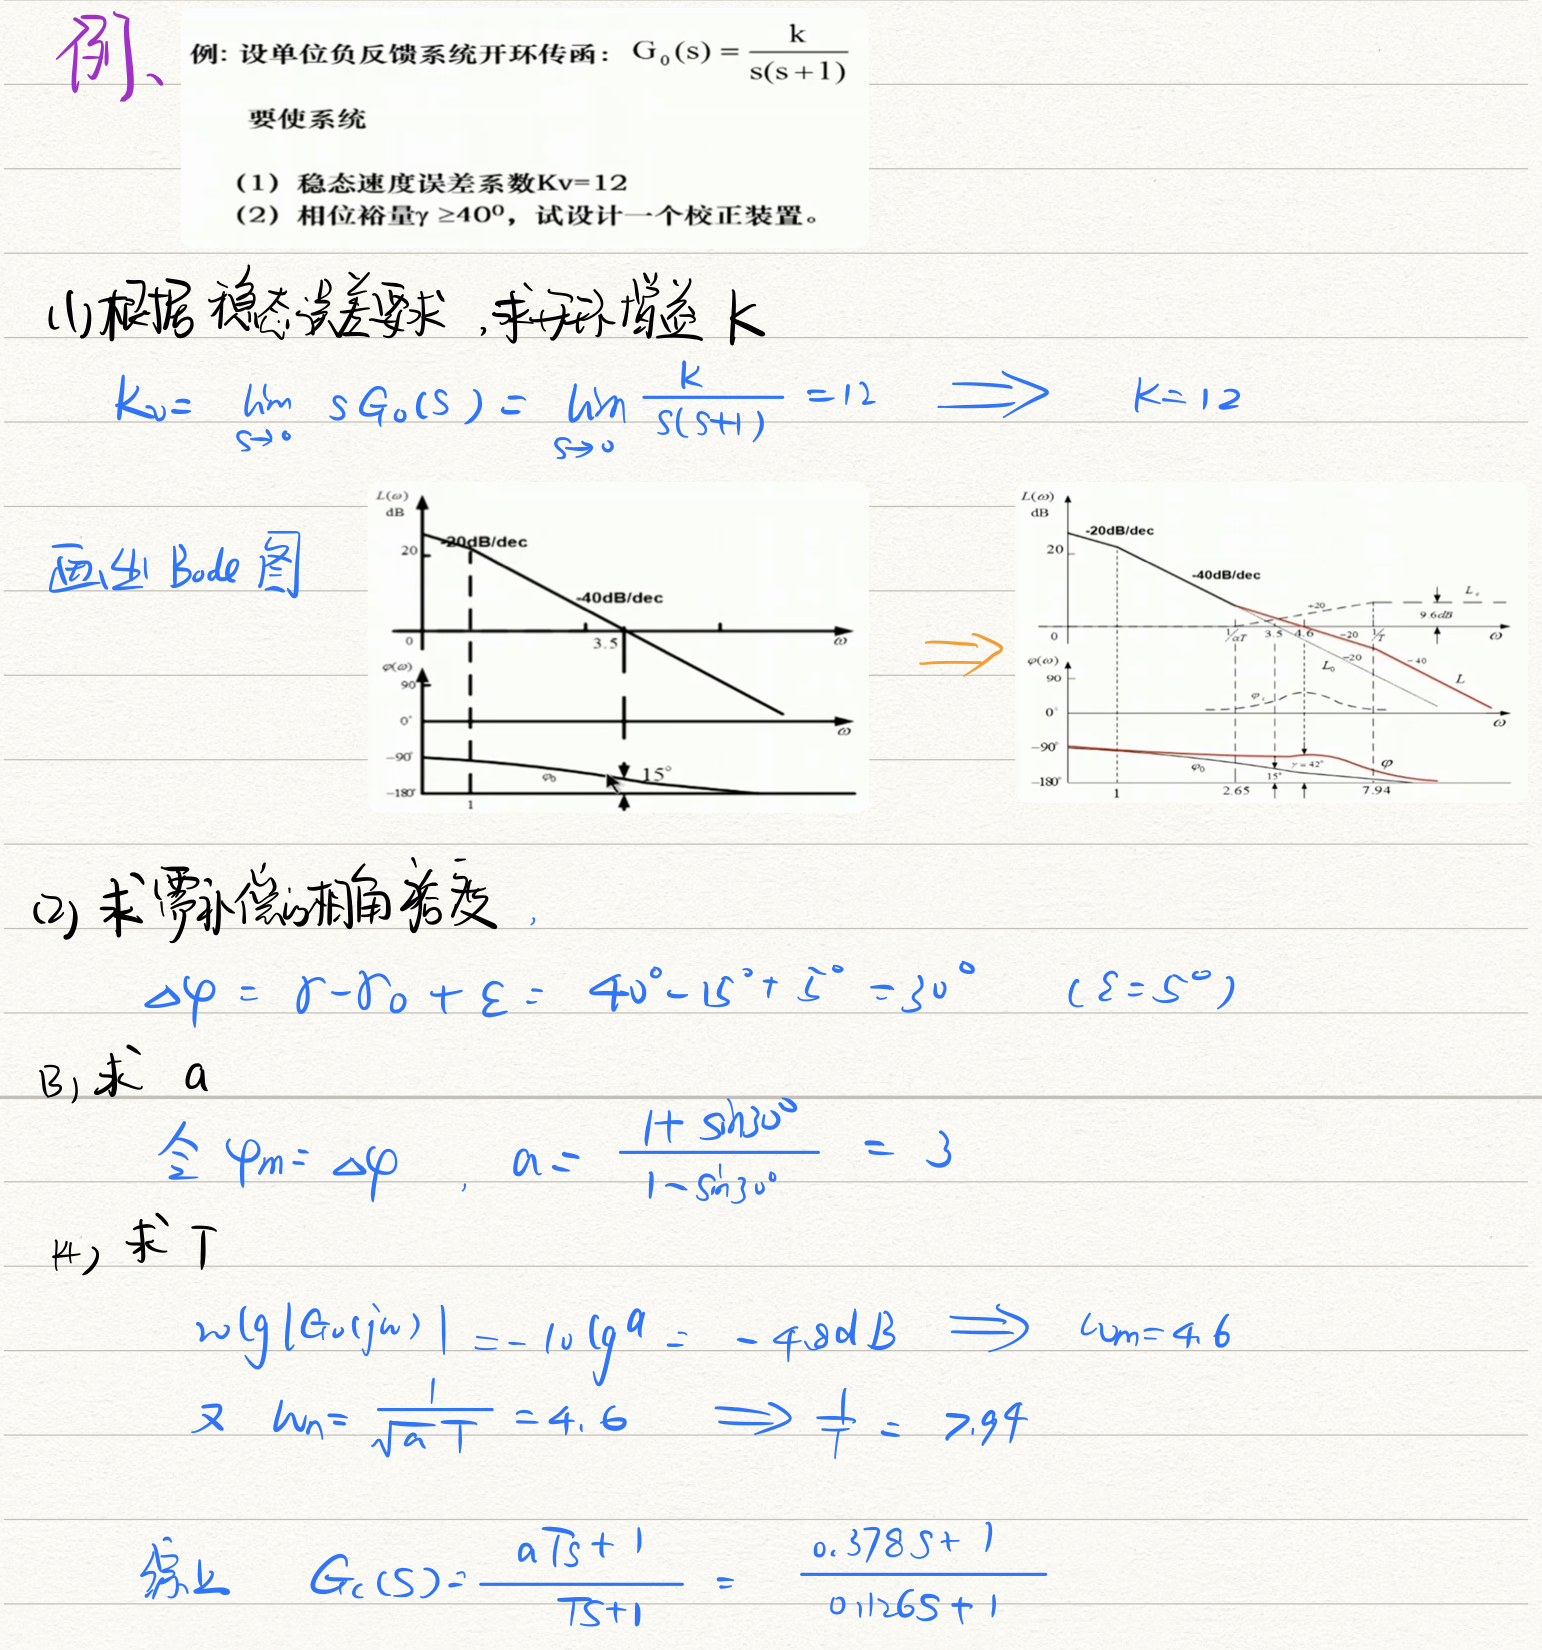 例、
例：设单位负反馈系统开环传函： G₀(s) = k / s(s+1)
要使系统
（1）稳态速度误差系数Kv=12
（2）相位裕量γ ≥40⁰，试设计一个校正装置。
(1)根据稳态误差要求，求开环增益 K
Kv = lim s→0 sG₀(S) = lim s→0 K / S(S+1) = 12 ⟹ K=12
画出 Bode 图
L(ω)
dB
-20dB/dec
20
-40dB/dec
0
3.5
ω
φ(ω)
90
0°
ω
-90°
φ₀
15°
-180°
1
L(ω)
dB
-20dB/dec
20
-40dB/dec
+20
L_c
9.6dB
0
1/αT
3.5
4.6
-20
1/T
ω
φ(ω)
L₀
-20
-40
L
90
φ_c
0°
ω
-90°
φ₀
15°
γ=42°
φ
-180°
1
2.65
7.94
⟹
(2) 求需补偿的相角裕度，
Δφ = γ-γ₀ + ε = 40°-15°+5° =30° (ε=5°)
(3) 求 a
令 φm = Δφ , a = 1+ sin30° / 1-sin30° = 3
(4) 求 T
20lg|G₀(jω)| = -10lg a = -4.8dB ⟹ ωm=4.6
又 ωm = 1 / √a T = 4.6 ⟹ 1/T = 7.94
综上 Gc(S) = aTs+1 / TS+1 = 0.378S+1 / 0.126S+1